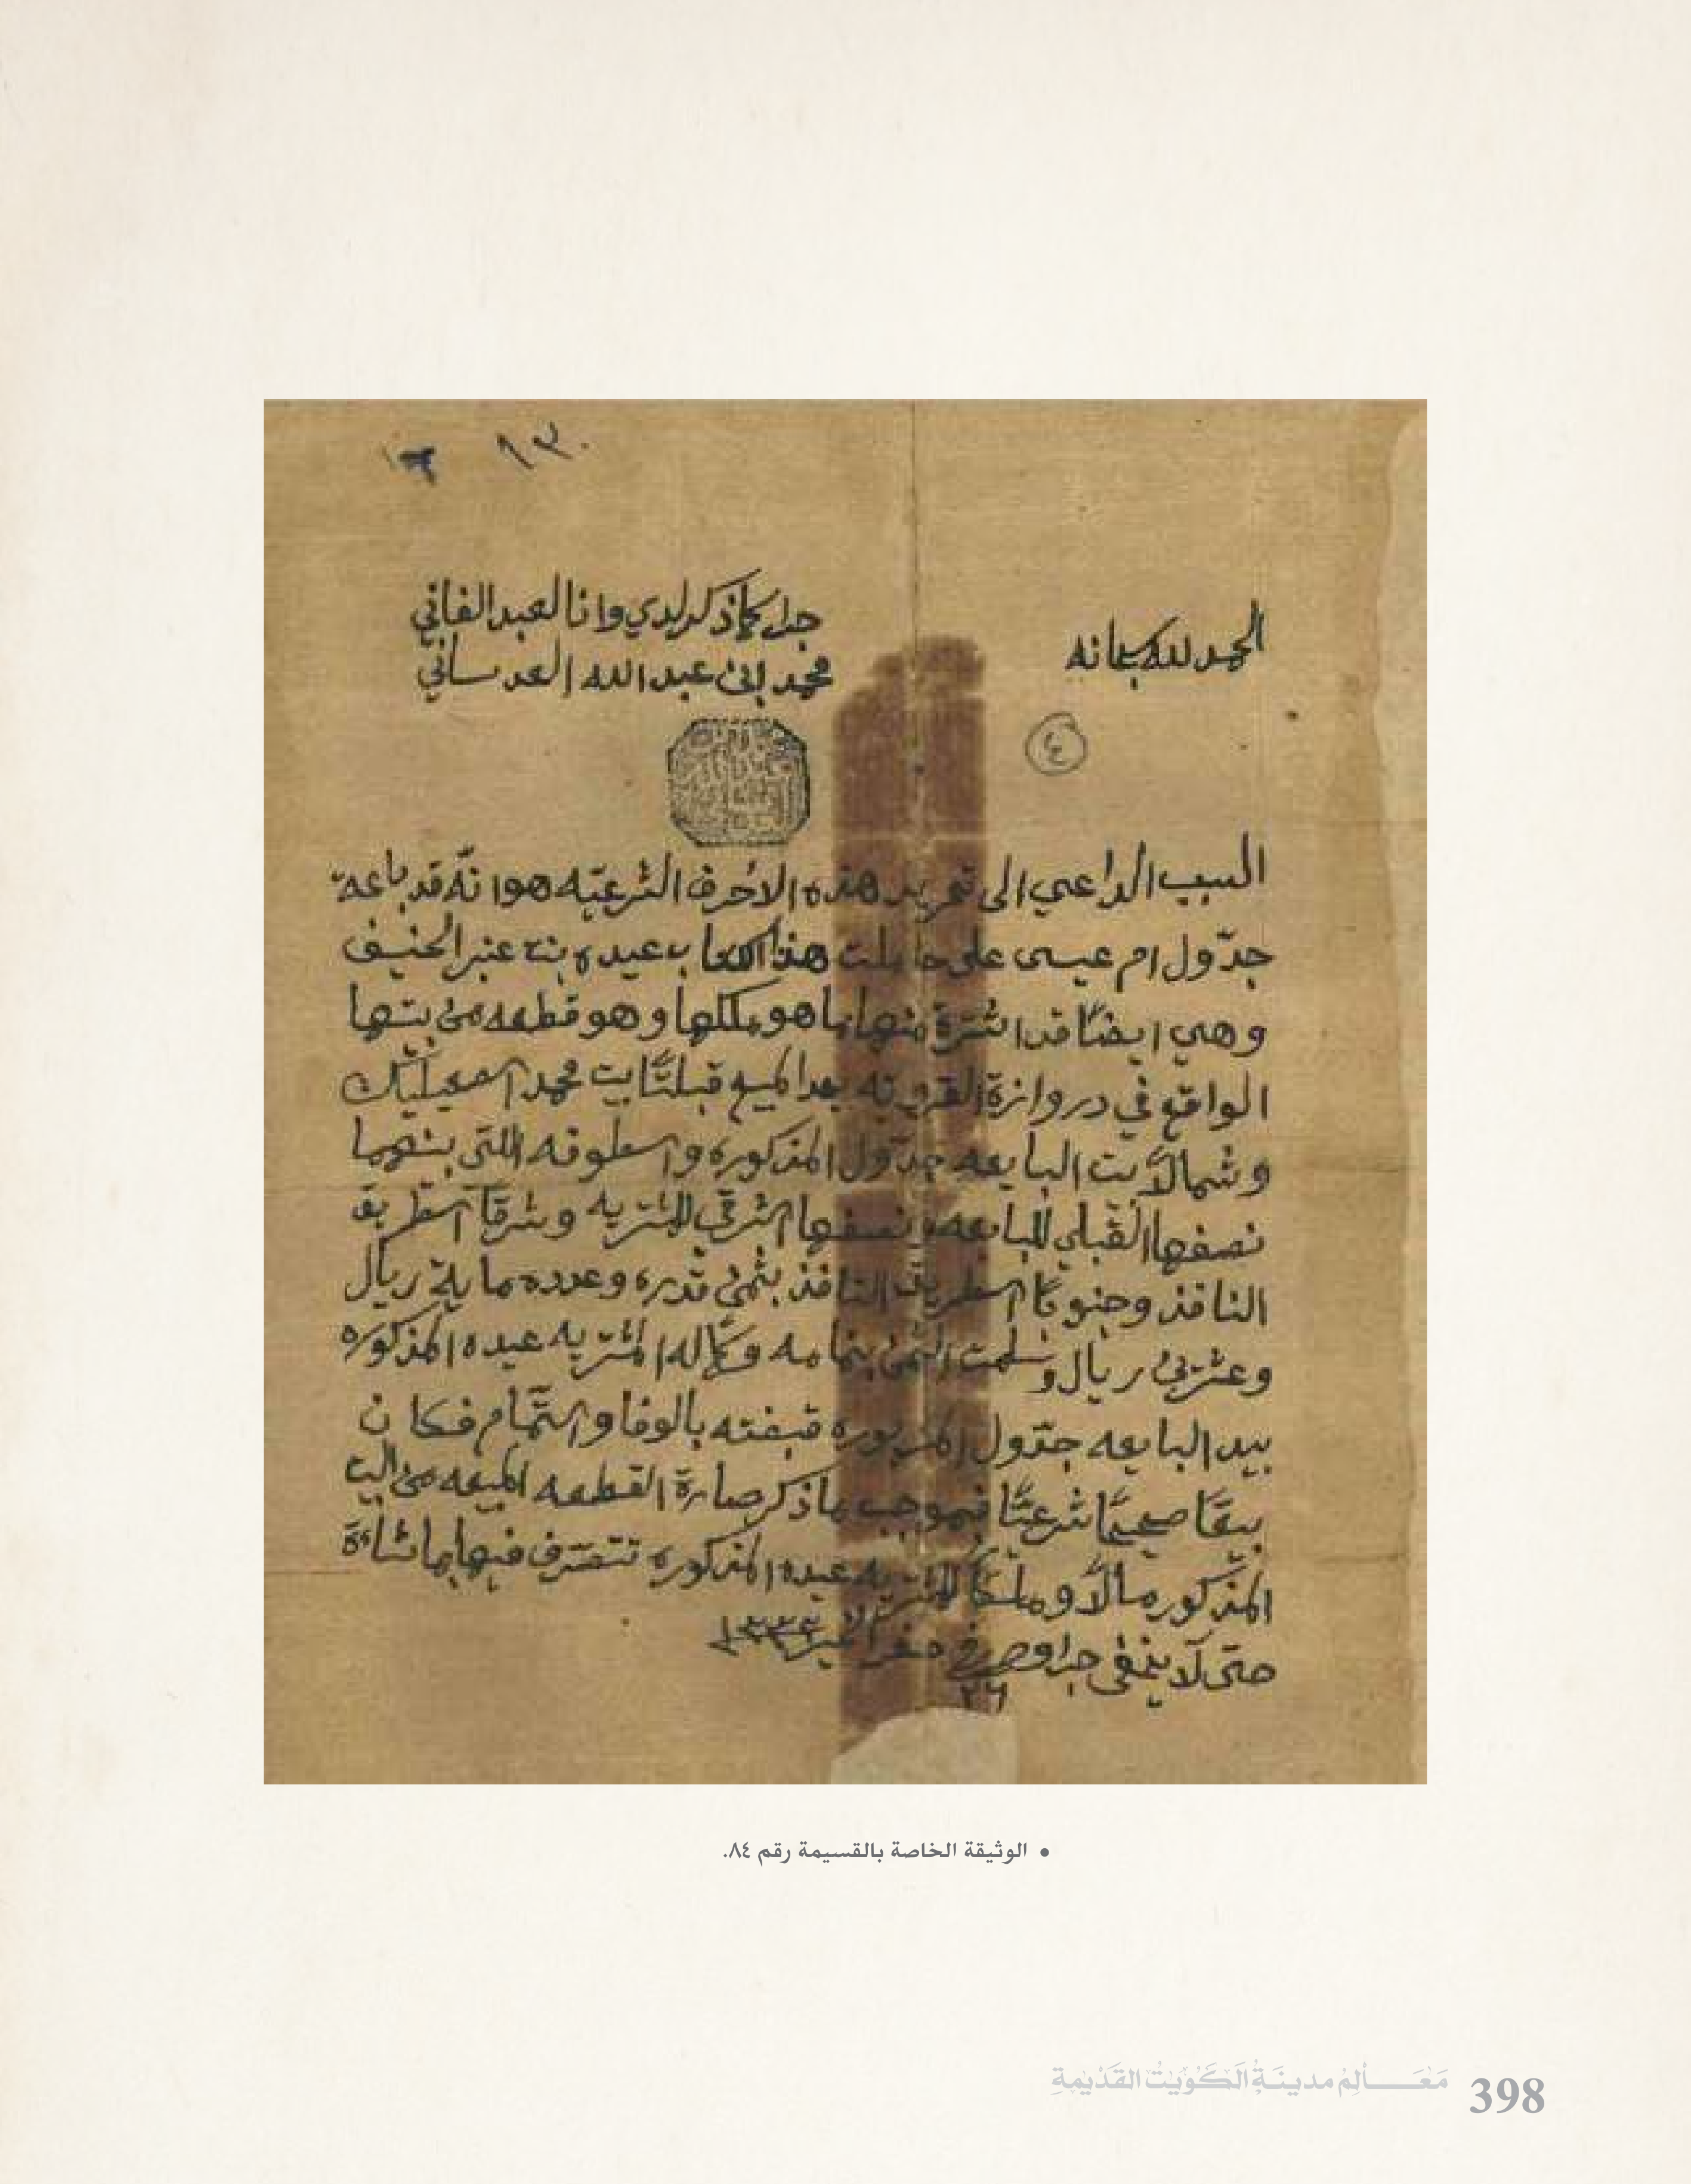 ٩٣٠
الحمد لله سبحانه
جرى كما ذكر لدي وانا العبد الفاني
محمد ابن عبدالله العدساني
٤
السبب الداعي الى تحرير هذه الاحرف الشرعيّه هو انّه قد باعة
جدّول ام عيسى على حاملت هذا الكتاب عيده بنت عنبر الحنيف
وهي ايضًا قد اشترة منها ما هو ملكها وهو قطعه من بيتها
الواقع في دروازة القرويه يحد المبيع قبلتًا بيت محمد
وشمالًا بيت البايعه جدّول المذكوره والسطوفه اللتي بينهما
نصفها القبلي للبايعه ونصفها الشرقي للمشتريه وشرقًا الطريق
النافذ وجنوبًا الطريق النافذ بثمن قدره وعدده ماية ريال
وعشرين ريال وسلمت الثمن بتمامه وكماله المشتريه عيده المذكوره
بيد البايعه جدّول المزبوره قبضته بالوفا والتّمام فكان
بيعًا صحيحًا شرعيًّا فبموجب ما ذكر صارة القطعه المبيعه من البيت
المذكور مالًا وملكًا للمشتريه عيده المذكوره تتصرّف فيها بما شاءة
حتى لا يخفى جرا وصح في ٢٦ صفر الخير ١٣٣٤
• الوثيقة الخاصة بالقسيمة رقم ٨٤.
مَعَالِمُ مدينَةِ الكُوَيْتْ القَدْيمةِ 398